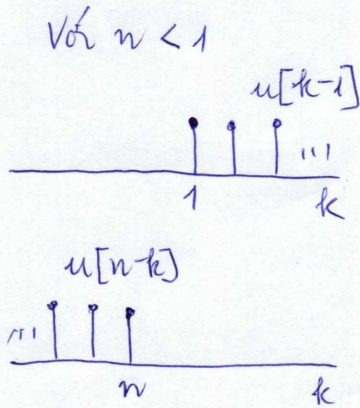 Với n < 1
u[k-1]
...
1
k
u[n-k]
...
n
k